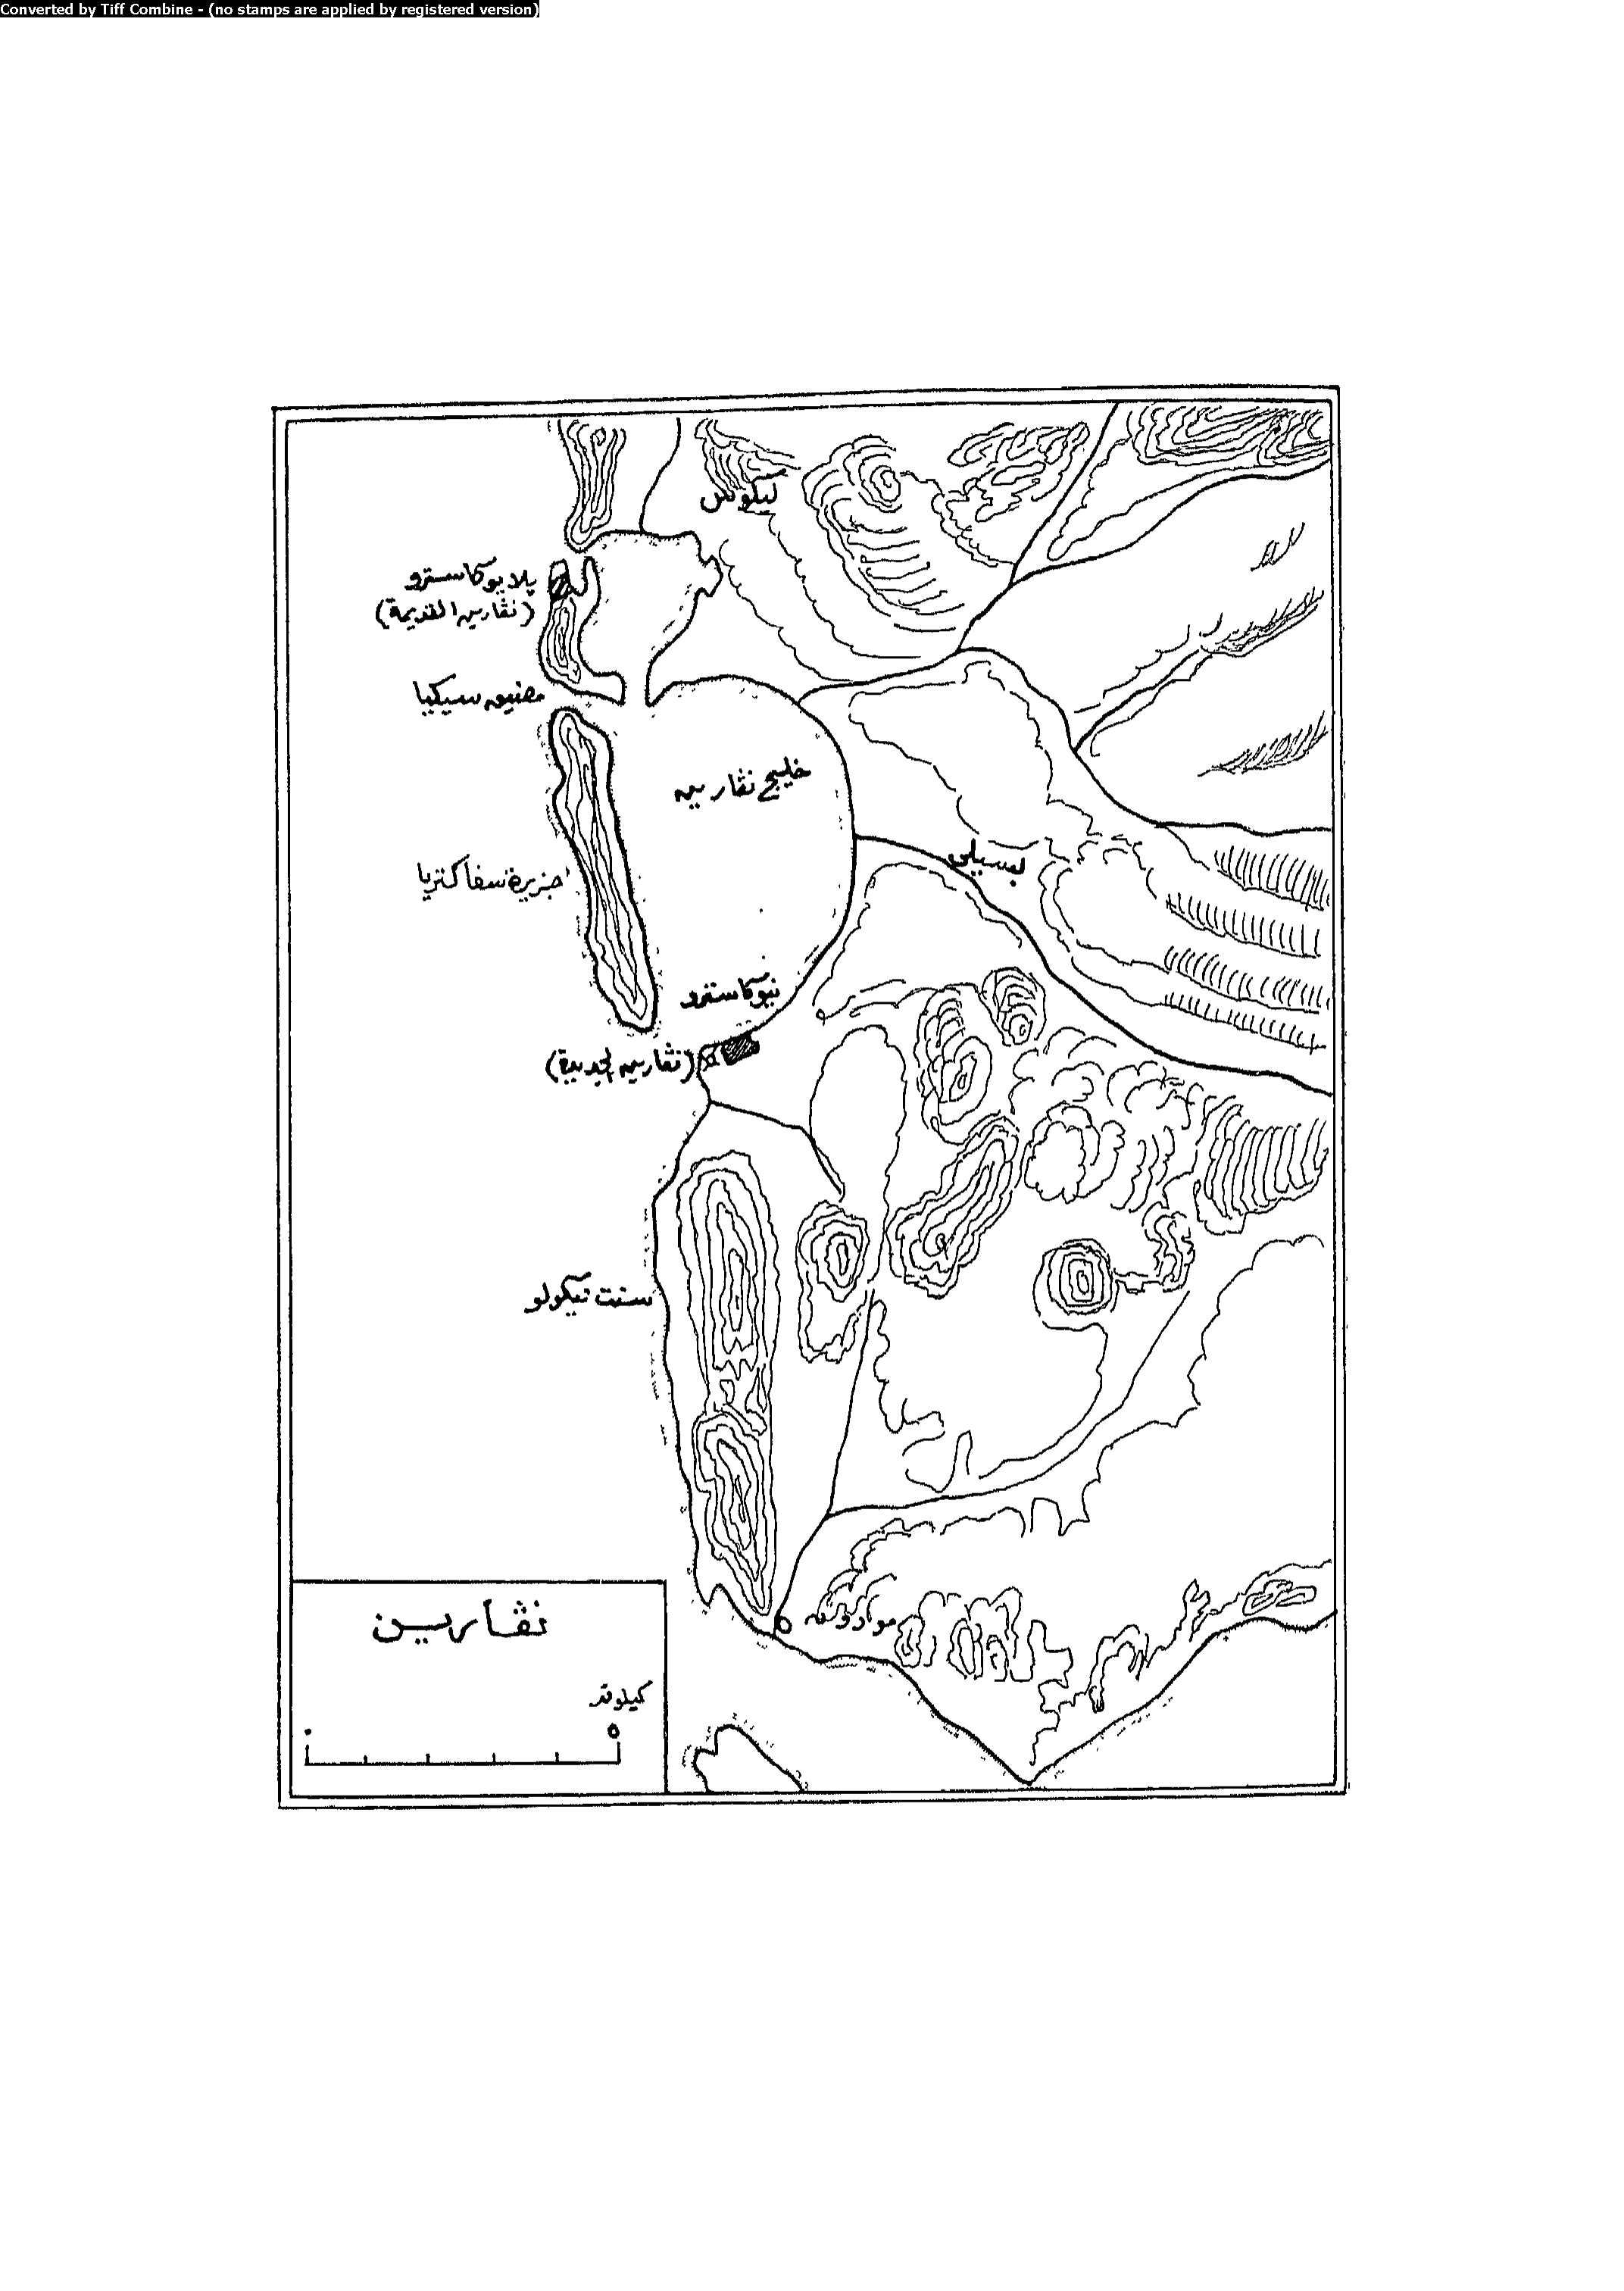 Converted by Tiff Combine - (no stamps are applied by registered version)
ليكوس
پلايوكاسترو
(نڤارين القديمة)
مضيق سيكيا
خليج نڤارين
جزيرة سفاكتريا
نيوكاسترو
(نڤارين الجديدة)
سنت نيكولو
نڤارين
كيلومتر
٠ ٥